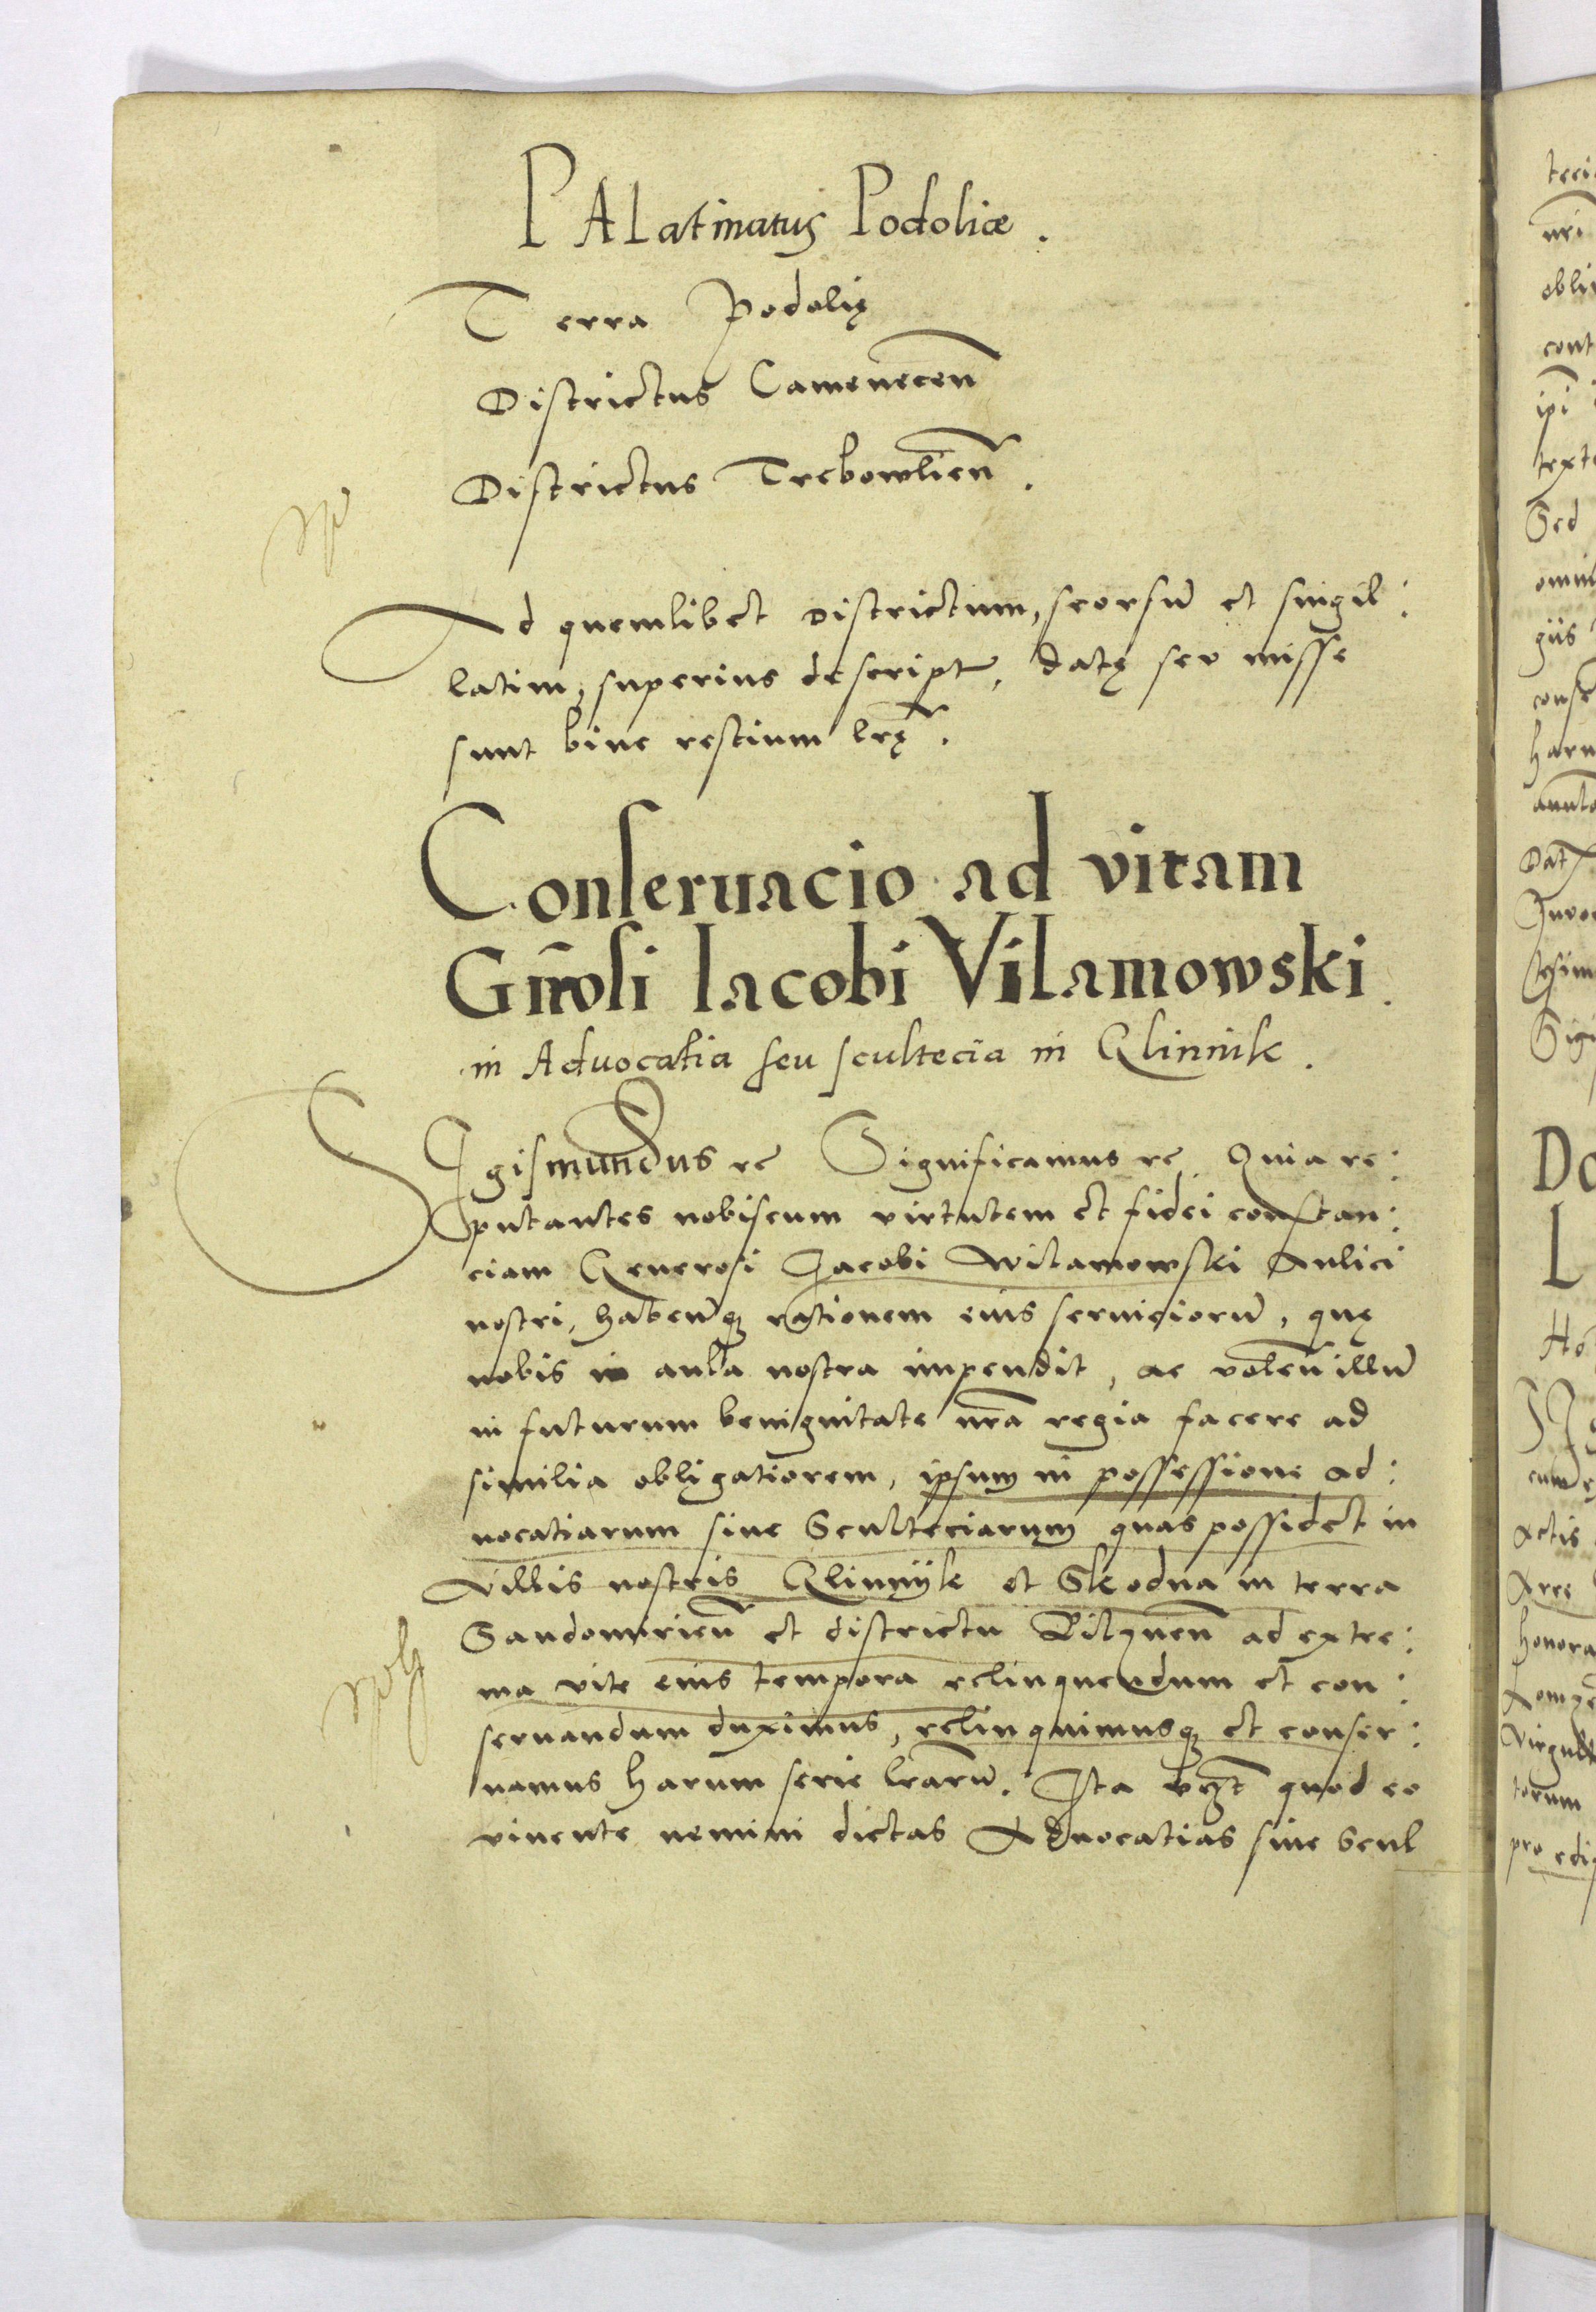 PALatinatus Podoliæ.
Terra Podolię
Districtus Camenecen̄
Districtus Trebowlien̄.
Ad quemlibet districtum, seorsū et singil:
latim, superius descript, datę seu misse
sunt bine restium lr̄ę.
Conseruacio ad vitam
Gn̄rosi Iacobi Vilamowski.
in Aduocatia seu scultecia in Glinnik.
SIgismundus rc Significamus rc Quia re:
putantes nobiscum virtutem et fidei constan:
ciam Generosi Jacobi Wilamowski Aulici
nostri, haben̄q rationem eius seruiciorū, quę
nobis in aula nostra impendit, ac volen̄ illū
in futurum benignitate nr̄a regia facere ad
similia obligatiorem, ipsum in possessione ad:
uocatiarum siue Scultetiarum quas possidet in
villis nostris Glinnyk et Skodna in terra
Sandomirien̄ et districtu Pilznen̄ ad extre:
ma vite eius tempora relinquendum et con:
seruandum duximus, relinquimusq et conser:
uamus harum serie lr̄arū. Ita vizt quod eo
viuente nemini dictas Aduocatias siue Scul